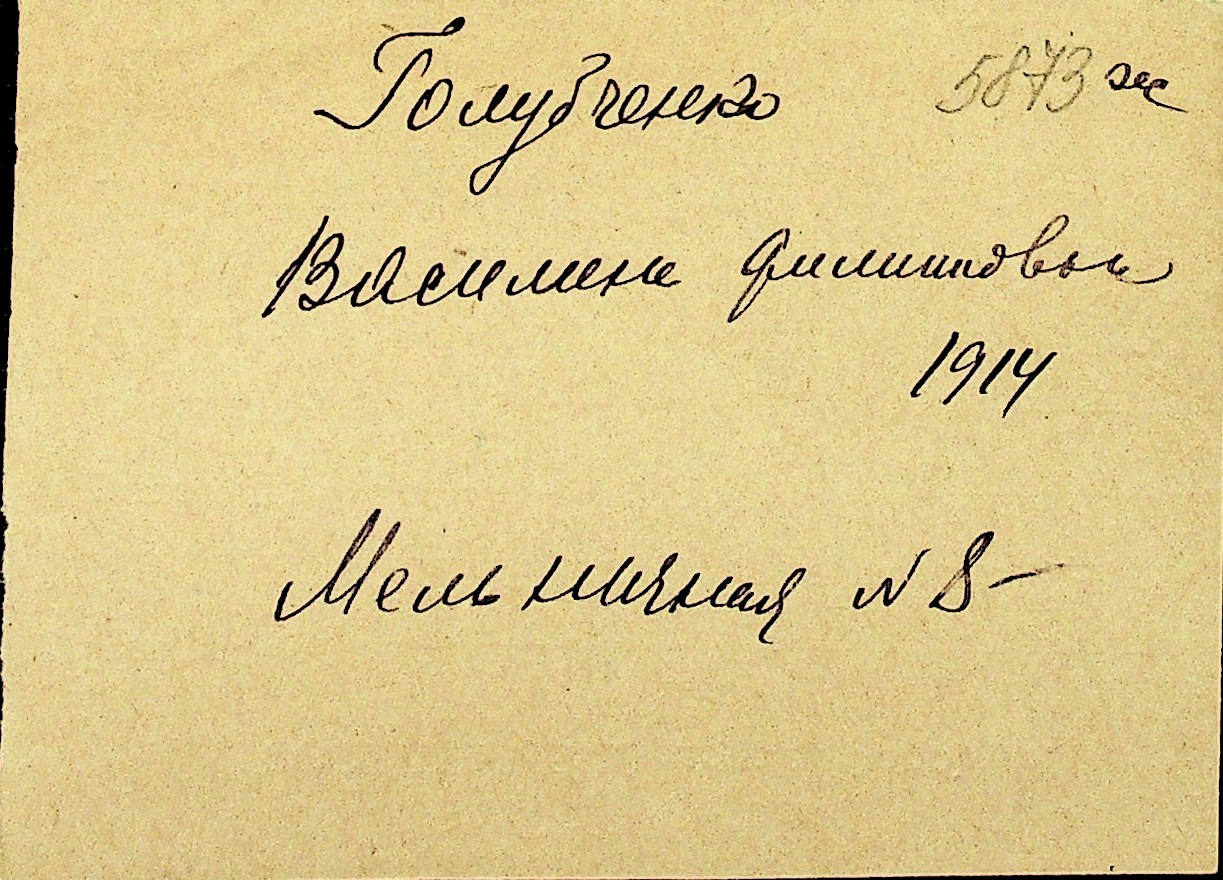 Голубченко 5873 ж
Василина Филипповна
1914
Мельничная N 8-